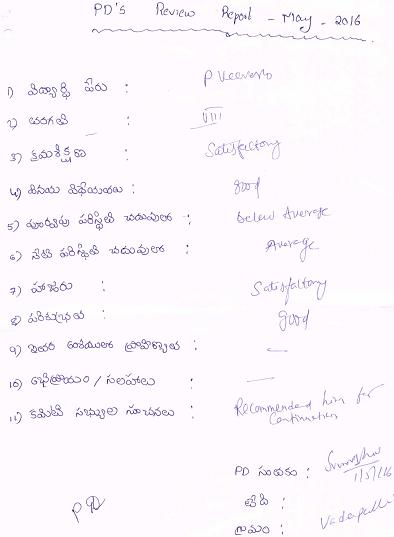 PD's Review Report - May - 2016
1) విద్యార్థి పేరు : P Veeranna
2) తరగతి : VIII
3) క్రమశిక్షణ : Satisfactory
4) వినయ విధేయతలు : good
5) పూర్వపు పరిస్థితి చదువులో : below Average
6) నేటి పరిస్థితి చదువులో : Average
7) హాజరు : Satisfactory
8) పరిశుభ్రత : good
9) ఇతర అంశములలో ప్రావీణ్యత : —
10) అభిప్రాయం / సలహాలు : —
11) కమిటి సభ్యుల సూచనలు : Recommended him for
Continuation
PD సంతకం :
1/5/16
తేది :
గ్రామం :